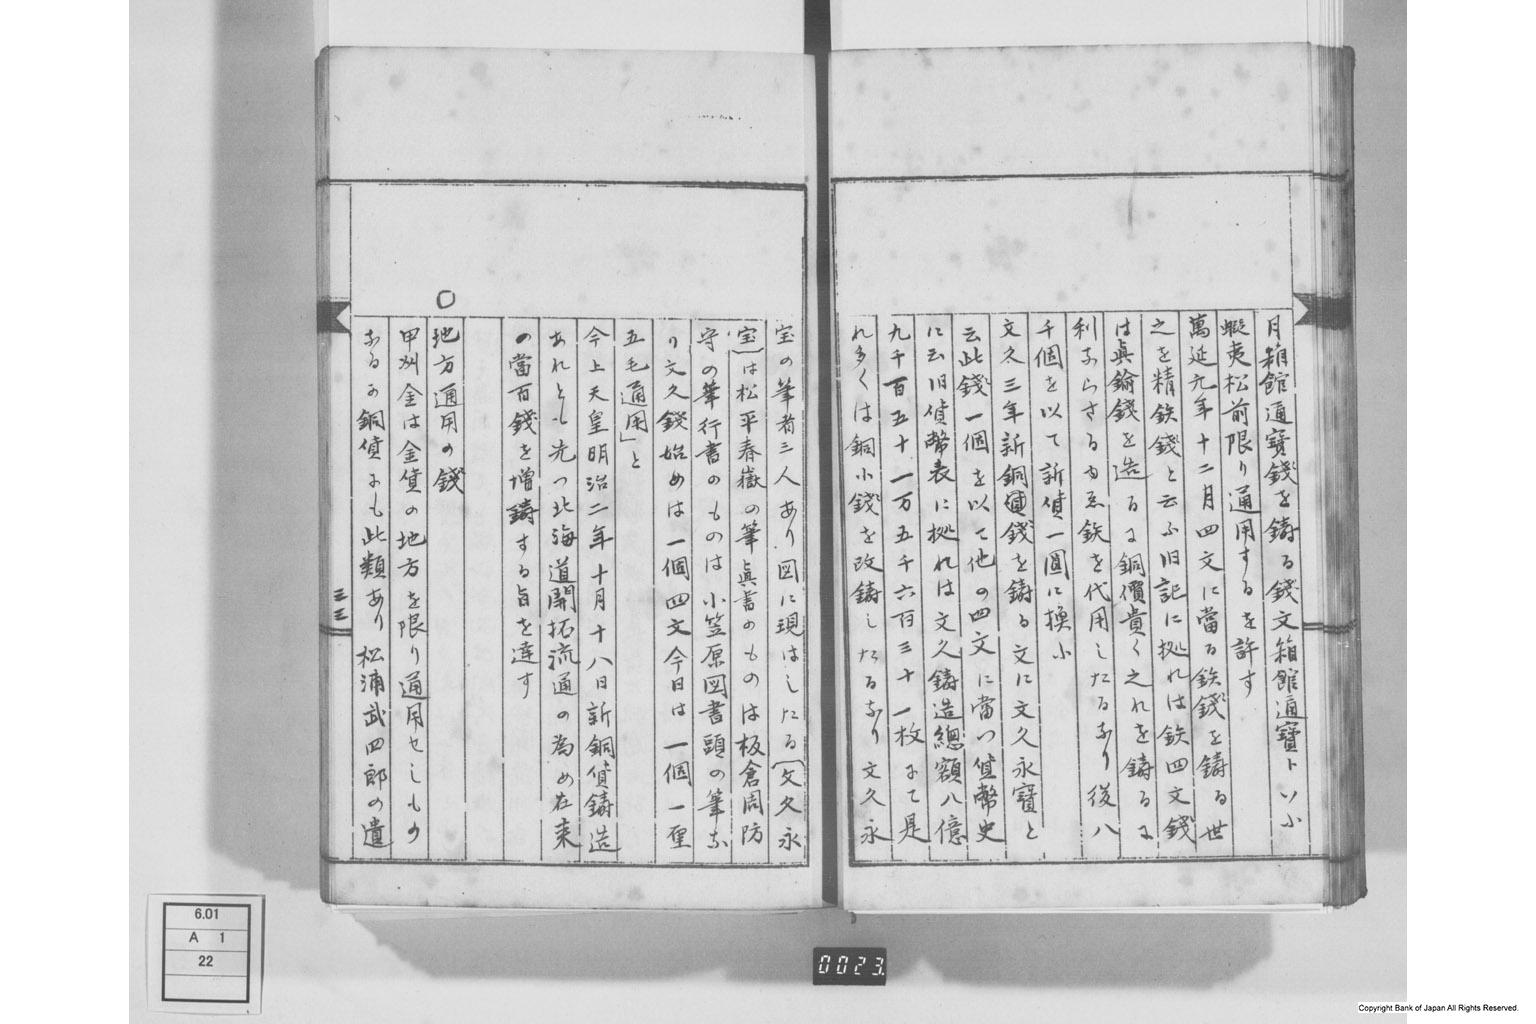 月箱館通寶錢を鑄る錢文箱館通寶トいふ
蝦夷松前限り通用するを許す
萬延元年十二月四文に當る鉄錢を鑄る世
之を精鉄錢と云ふ旧記に拠れは鉄四文錢
は眞鍮錢を造るに銅價貴く之れを鑄るに
利ならさるゆゑ鉄を代用したるなり後八
千個を以て新貨一圓に換ふ
文久三年新銅錢を鑄る文に文久永寶と
云此錢一個を以て他の四文に當つ貨幣史
に云旧貨幣表に拠れは文久鑄造總額八億
九千百五十一万五千六百三十一枚にて是
れ多くは銅小錢を改鑄したるなり文久永
宝の筆者三人あり図に現はしたる（文久永
宝）は松平春嶽の筆眞書のものは板倉周防
守の筆行書のものは小笠原図書頭の筆な
り文久錢始めは一個四文今日は一個一厘
五毛通用」と
今上天皇明治二年十月十八日新銅貨鑄造
あれとも先つ北海道開拓流通の為め在来
の當百錢を增鑄する旨を達す
○
地方通用の錢
甲州金は金貨の地方を限り通用せしもの
なるか銅貨にも此類あり松浦武四郎の遺
三三
6.01
A 1
22
0023.
Copyright Bank of Japan All Rights Reserved.